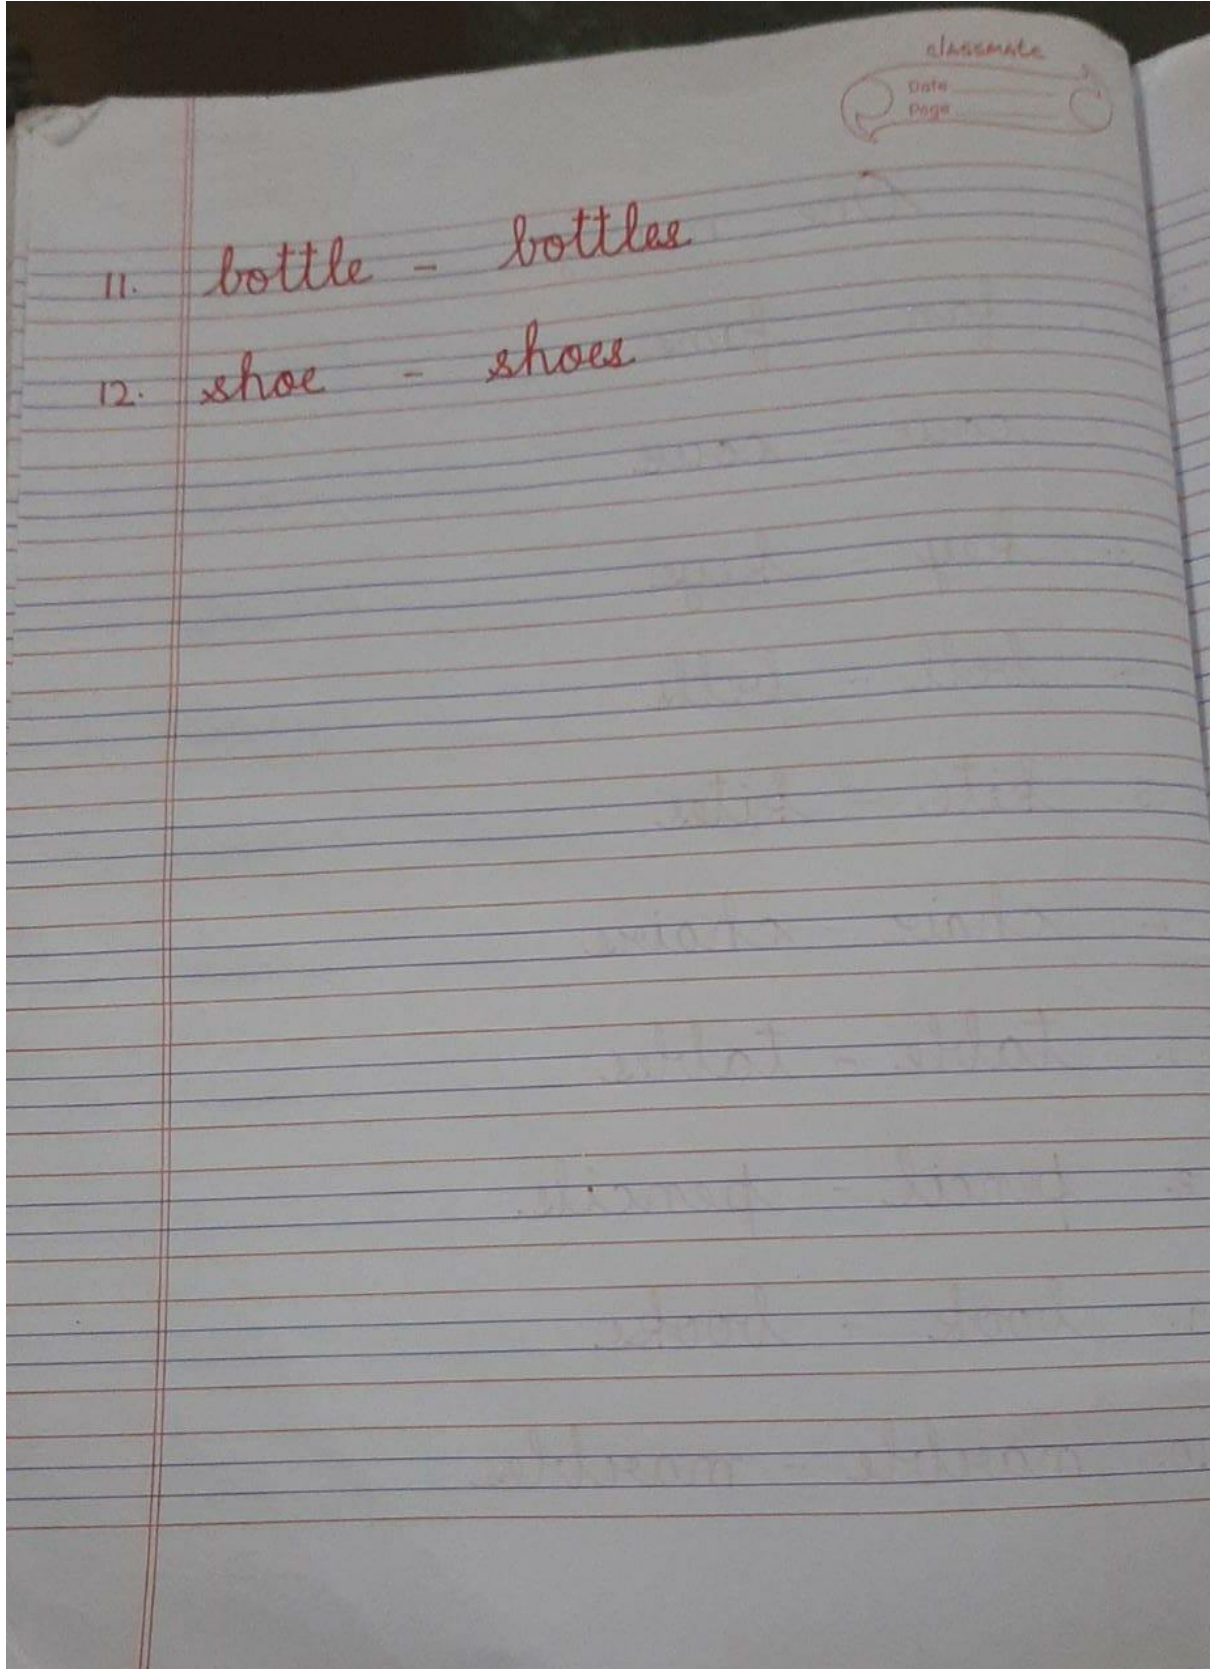 classmate
Date
Page
11. bottle - bottles
12. shoe - shoes